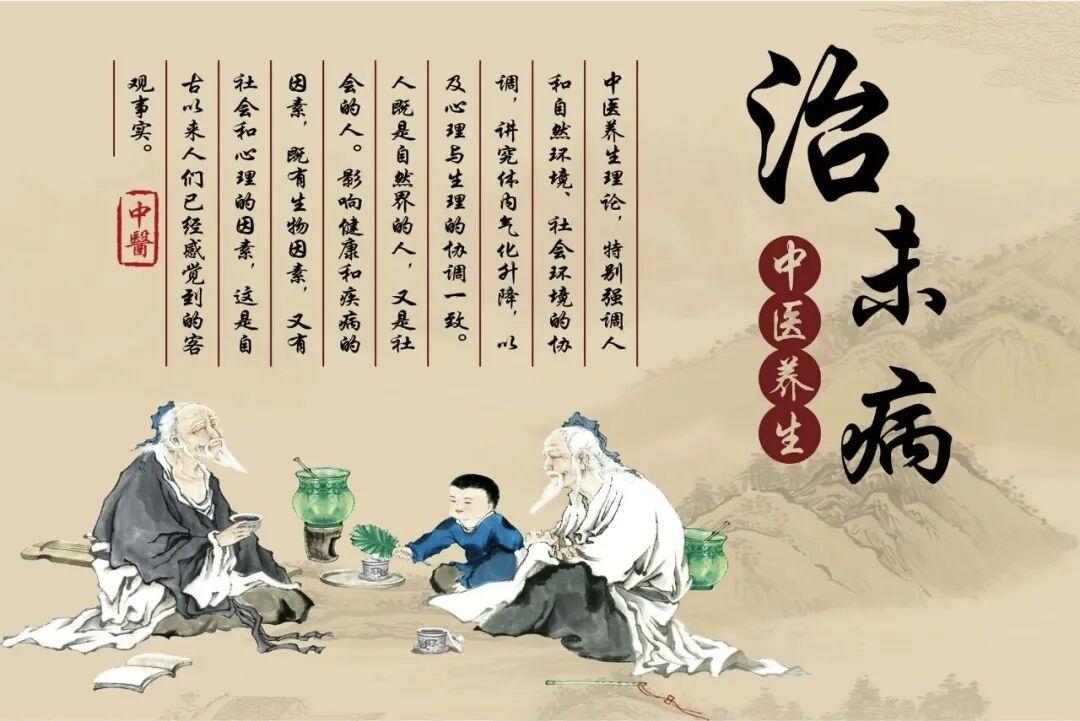 治未病
中医养生
中医养生理论，特别强调人
和自然环境、社会环境的协
调，讲究体内气化升降，以
及心理与生理的协调一致。
人既是自然界的人，又是社
会的人。影响健康和疾病的
因素，既有生物因素，又有
社会和心理的因素，这是自
古以来人们已经感觉到的客
观事实。
中醫